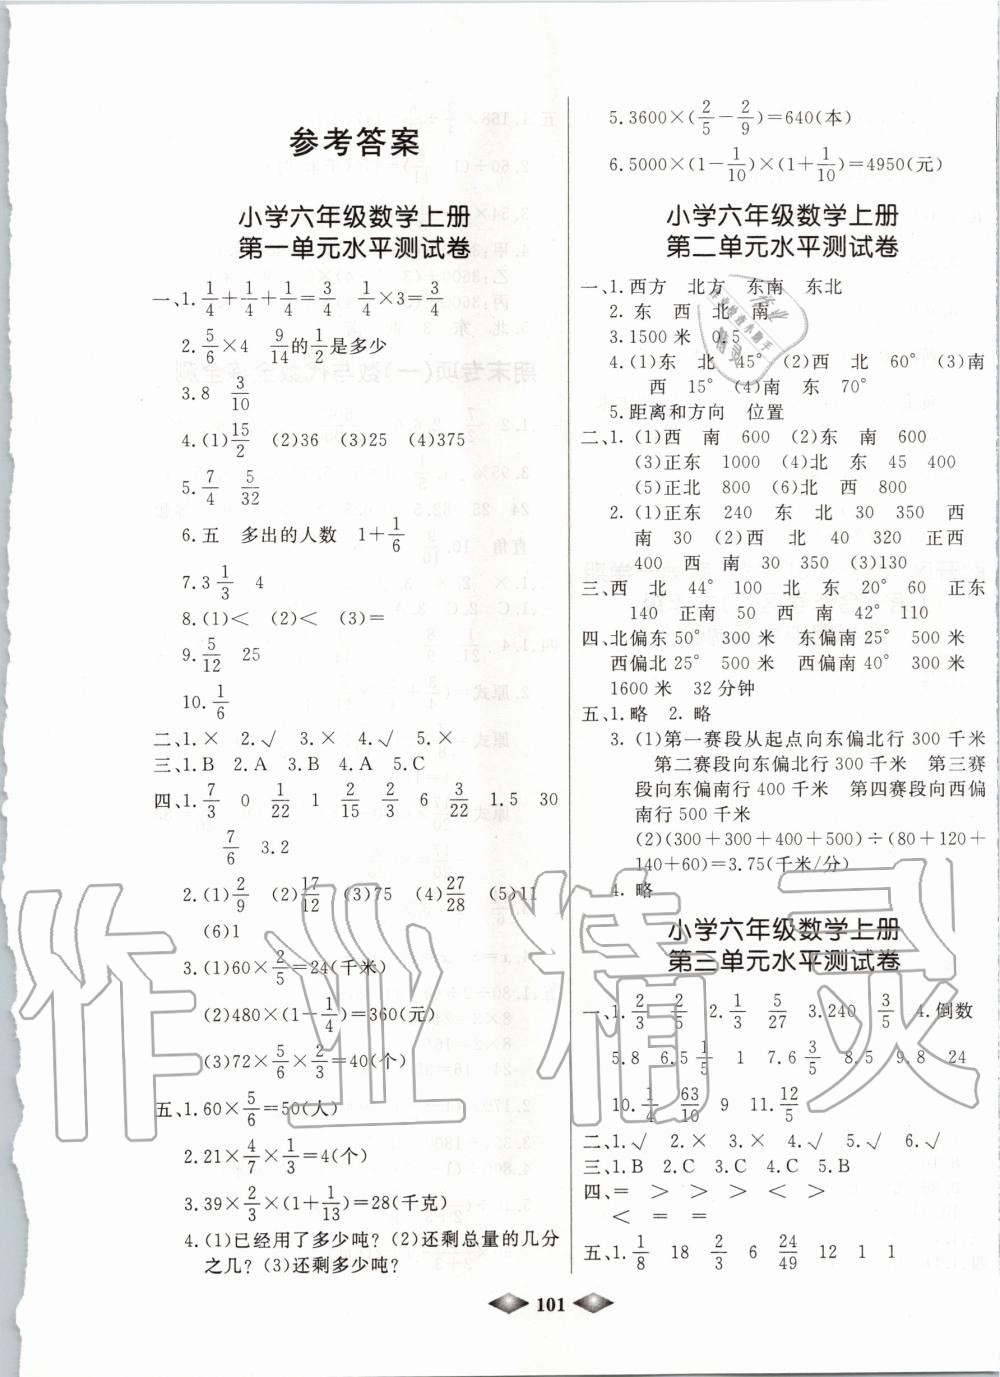 参考答案
小学六年级数学上册
第一单元水平测试卷
一、1. 1/4+1/4+1/4=3/4 1/4×3=3/4
2. 5/6×4 9/14的1/2是多少
3.8 3/10
4.(1)15/2 (2)36 (3)25 (4)375
5. 7/4 5/32
6.五 多出的人数 1+1/6
7.3 1/3 4
8.(1)< (2)< (3)=
9. 5/12 25
10. 1/6
二、1.× 2.√ 3.× 4.√ 5.×
三、1.B 2.A 3.B 4.A 5.C
四、1. 7/3 0 1/22 1 2/15 2/3 6 3/22 1.5 30
7/6 3.2
2.(1)2/9 (2)17/12 (3)75 (4)27/28 (5)11
(6)1
3.(1)60×2/5=24(千米)
(2)480×(1-1/4)=360(元)
(3)72×5/6×2/3=40(个)
五、1.60×5/6=50(人)
2.21×4/7×1/3=4(个)
3.39×2/3×(1+1/13)=28(千克)
4.(1)已经用了多少吨? (2)还剩总量的几分
之几? (3)还剩多少吨?
5.3600×(2/5-2/9)=640(本)
6.5000×(1-1/10)×(1+1/10)=4950(元)
小学六年级数学上册
第二单元水平测试卷
一、1.西方 北方 东南 东北
2.东 西 北 南
3.1500米 0.5
4.(1)东 北 45° (2)西 北 60° (3)南
西 15° (4)南 东 70°
5.距离和方向 位置
二、1.(1)西 南 600 (2)东 南 600
(3)正东 1000 (4)北 东 45 400
(5)正北 800 (6)北 西 800
2.(1)正东 240 东 北 30 350 西
南 30 (2)西 北 40 320 正西
400 西 南 30 350 (3)130
三、西 北 44° 100 北 东 20° 60 正东
140 正南 50 西 南 42° 110
四、北偏东50° 300米 东偏南25° 500米
西偏北25° 500米 西偏南40° 300米
1600米 32分钟
五、1.略 2.略
3.(1)第一赛段从起点向东偏北行300千米
第二赛段向东偏北行300千米 第三赛
段向东偏南行400千米 第四赛段向西偏
南行500千米
(2)(300+300+400+500)÷(80+120+
140+60)=3.75(千米/分)
4.略
小学六年级数学上册
第三单元水平测试卷
一、1. 2/3 2/5 2. 1/3 5/27 3.240 3/5 4.倒数
5.8 6.5 1/5 1 7.6 3/5 8.5 9.8 24
10. 1/4 63/10 9 11. 12/5
二、1.√ 2.× 3.× 4.√ 5.√ 6.√
三、1.B 2.C 3.C 4.C 5.B
四、= > > > < >
< = = >
五、1. 1/8 18 2/3 6 24/49 12 1 1
101
作业精灵